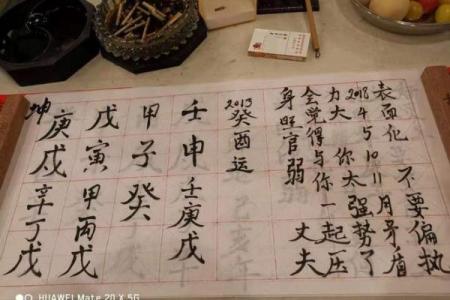 坤
庚戌 辛丁戊
戊寅 甲丙戊
甲子 癸
壬申 壬庚戊
2013
癸酉运
身旺官弱 丈夫
会觉得与你一起压
力大 你太强势了
2018 4 5 10 11月矛盾
表面化 不要偏执
HUAWEI Mate 20 X 5G